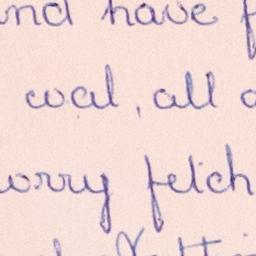 and have f
coal, all a
worry fetch